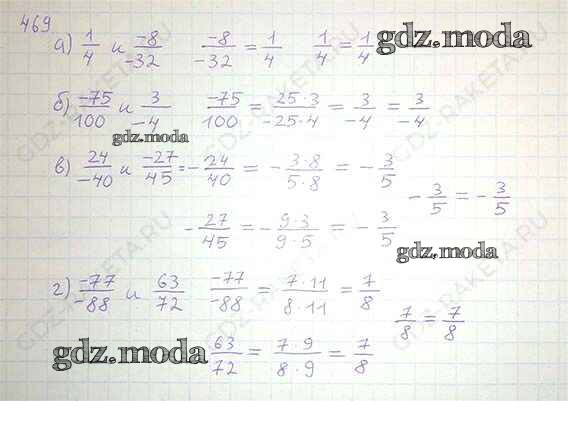 469.
а) 1/4 и -8/-32   -8/-32 = 1/4   1/4 = 1/4
gdz.moda
б) -75/100 и 3/-4   -75/100 = 25·3/-25·4 = 3/-4 = 3/-4
gdz.moda
в) 24/-40 и -27/45 = -24/40 = -3·8/5·8 = -3/5
-3/5 = -3/5
-27/45 = -9·3/9·5 = -3/5
gdz.moda
г) -77/-88 и 63/72   -77/-88 = 7·11/8·11 = 7/8
7/8 = 7/8
gdz.moda
63/72 = 7·9/8·9 = 7/8
GDZ-RAKETA.RU